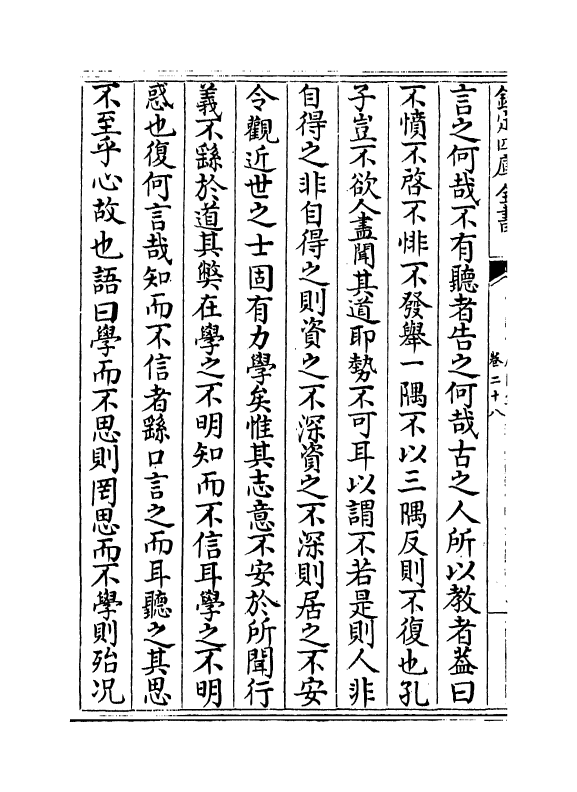 欽定四庫全書
卷二十八
言之何哉不有聽者告之何哉古之人所以教者葢曰
不憤不啓不悱不發舉一隅不以三隅反則不復也孔
子豈不欲人盡聞其道耶勢不可耳以謂不若是則人非
自得之非自得之則資之不深資之不深則居之不安
今觀近世之士固有力學矣惟其志意不安於所聞行
義不繇於道其獘在學之不明知而不信耳學之不明
惑也復何言哉知而不信者繇口言之而耳聽之其思
不至乎心故也語曰學而不思則罔思而不學則殆况